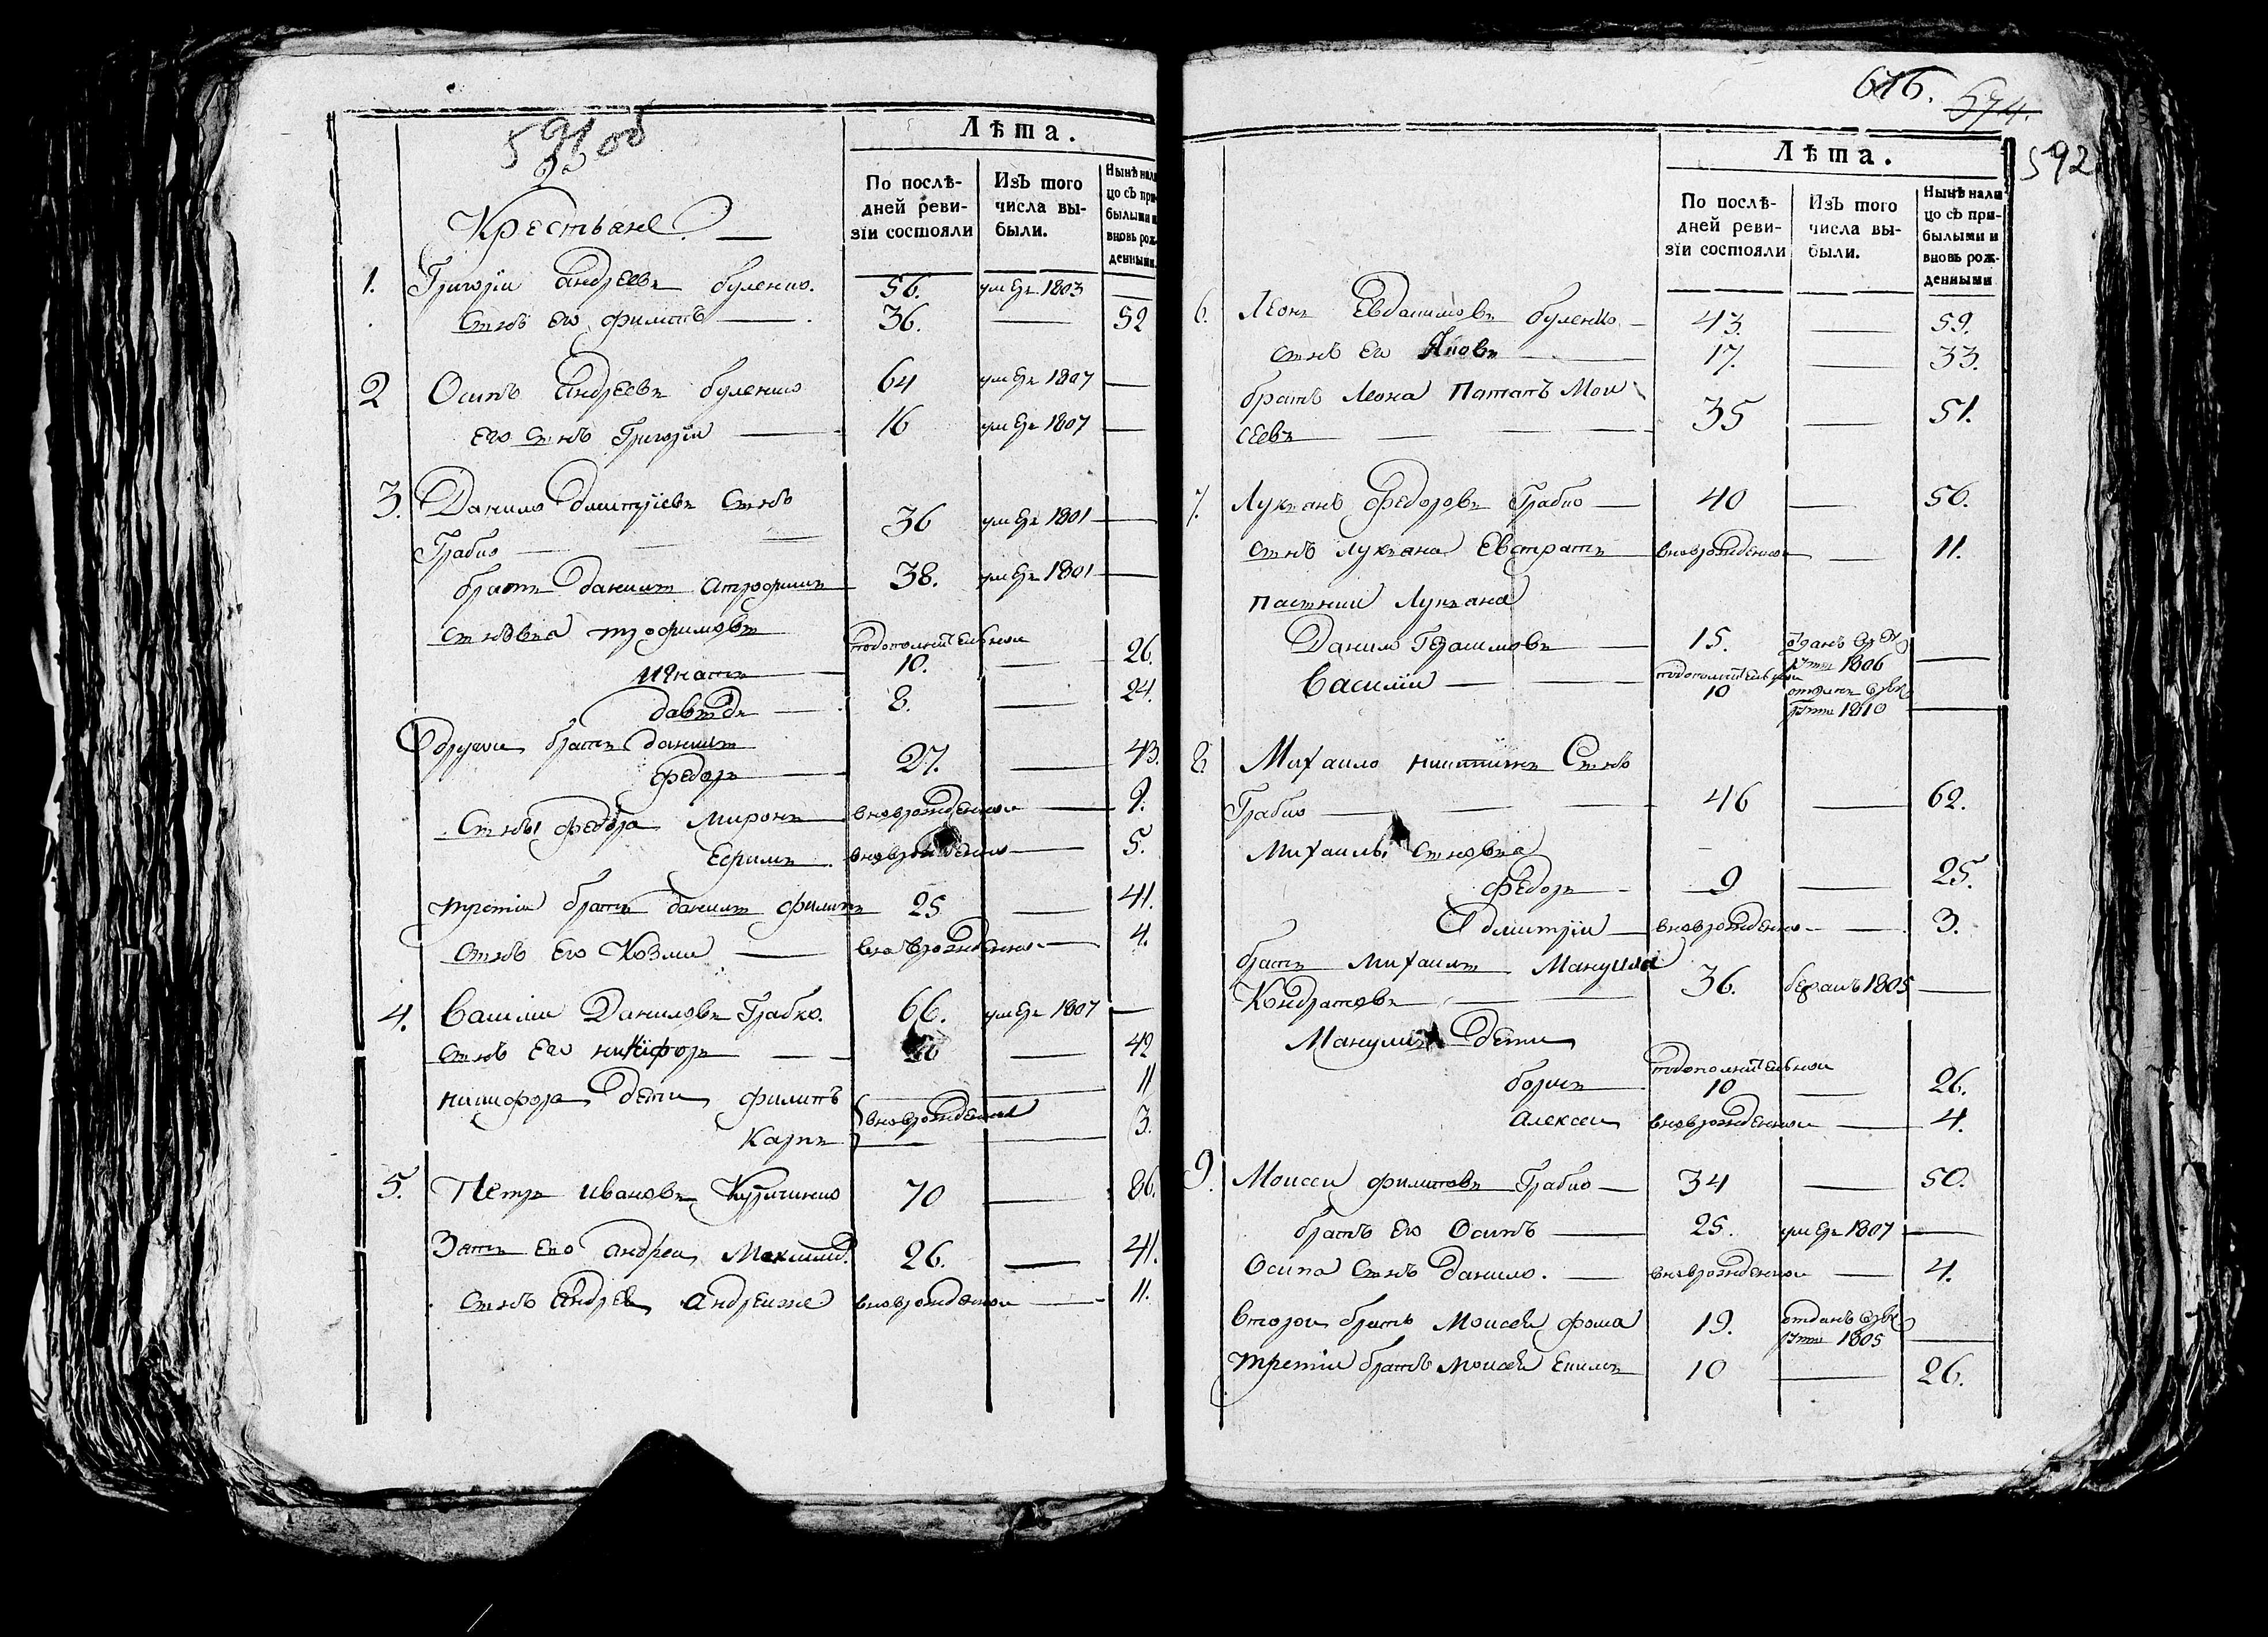 591 об
Лѣта.
По послѣ-
дней реви-
зіи состояли
Изъ того
числа вы-
были.
Нынѣ нали
цо съ при
былыми и
вновь рож
денными.
Крестьяне.
1. Григорій Андреевъ буленко. 56. умеръ 1803 —
Сынъ его филипъ — 36. — 52
2 Осипъ Андреевъ буленко 64 умеръ 1807 —
его сынъ Григорій — 16 умеръ 1807 —
3. Данило дмитріевъ Сынъ
Грабко — 36 умеръ 1801 —
братъ данилы атрофимъ 38. умеръ 1801 —
сыновья трофимовы
подополнительной
игнатъ 10. — 26.
давыдъ — 8. — 24.
Другой братъ данилы
федоръ 27. — 43.
Сыны федора Миронъ вноврожденной — 9.
Ефимъ вноврожденной — 5.
третій братъ данилы филипъ 25 — 41.
Сынъ его Козма — вновьрожденной — 4.
4. Василій Даниловъ Грабко. 66. умеръ 1807 —
Сынъ его никифоръ — 26 — 42
никифора дети филипъ вноврожденныи 11
Карпъ — 3.
5. Петръ ивановъ 70 — 86.
Зять его андрей Максимо. 26. — 41.
Сынъ андрея андрей же вноврожденной — 11.
616. 574.
592
Лѣта.
По послѣ-
дней реви-
зіи состояли
Изъ того
числа вы-
были.
Нынѣ нали
цо съ при-
былыми и
вновь рож-
денными
6. Леонъ Евдакимовъ буленко — 43. — 59.
сынъ его Яковъ — 17. — 33.
братъ Леона Потапъ Мои
сеевъ — 35 — 51.
7. Лукянъ федоровъ Грабко — 40 — 56.
Сынъ лукяна Евстратъ вноврожденной — 11.
пасынки Лукяна
Данило Герасимовъ — 15. отданъ в рек
руты 1806 —
подополнительной
Василій — 10 отданъ в рек
руты 1810 —
8. Михайло никитинъ Сынъ
Грабко — 46 — 62.
Михайлы сыновья
федоръ — 9 — 25.
дмитрій — вноврожденной — 3.
братъ михайлы Мануила
Кондратовъ — 36. бежалъ 1805 —
Мануила дети
подополнительной
борисъ 10 — 26.
алексей вноврожденной — 4.
9. Моисей филиповъ Грабко — 34 — 50.
братъ его Осипъ — 25. умеръ 1807 —
Осипа Сынъ данило. — вноврожденной — 4.
второй братъ Моисея фома 19. отданъ в рек
руты 1805 —
третій братъ моисея 10 — 26.